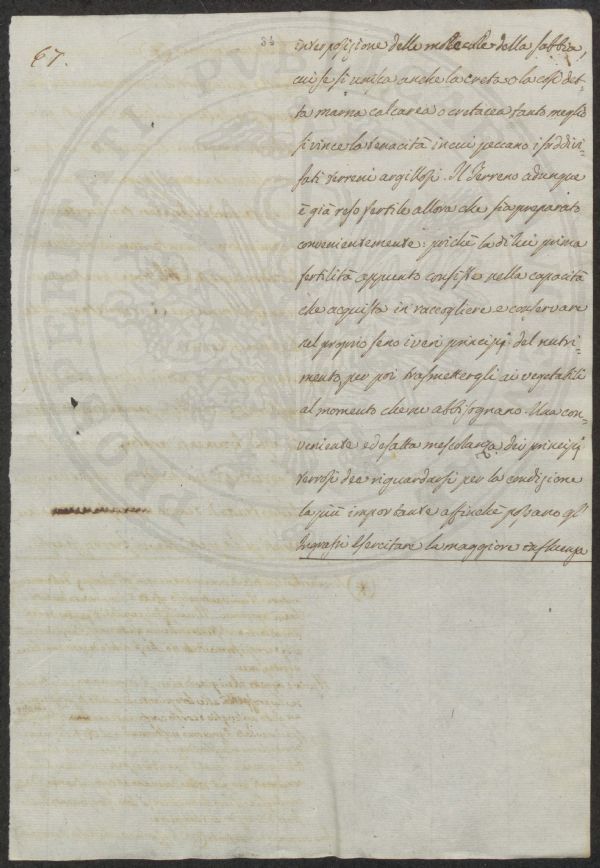 67.
34
interposizione delle molecole della sabbia,
cui se si unita anche la creta o la così det-
ta marna calcarea o cretacea tanto meglio
si vince la tenacità in cui peccano i soddivi-
sati terreni argillosi. Il Terreno adunque
è già reso fertile allora che sia preparato
convenientemente: poichè la di lui prima
fertilità appunto consiste nella capacità
che acquista in raccogliere e conservare
nel proprio seno i veri principj del nutri-
mento, per poi trasmettergli ai vegetabili
al momento che ne abbisognano. Una con-
veniente ed esatta mescolanza dei principj
terrosi dee riguardarsi per la condizione
la più importante affinchè possano gl'
Ingrassi esercitare la maggiore influenza
(*)